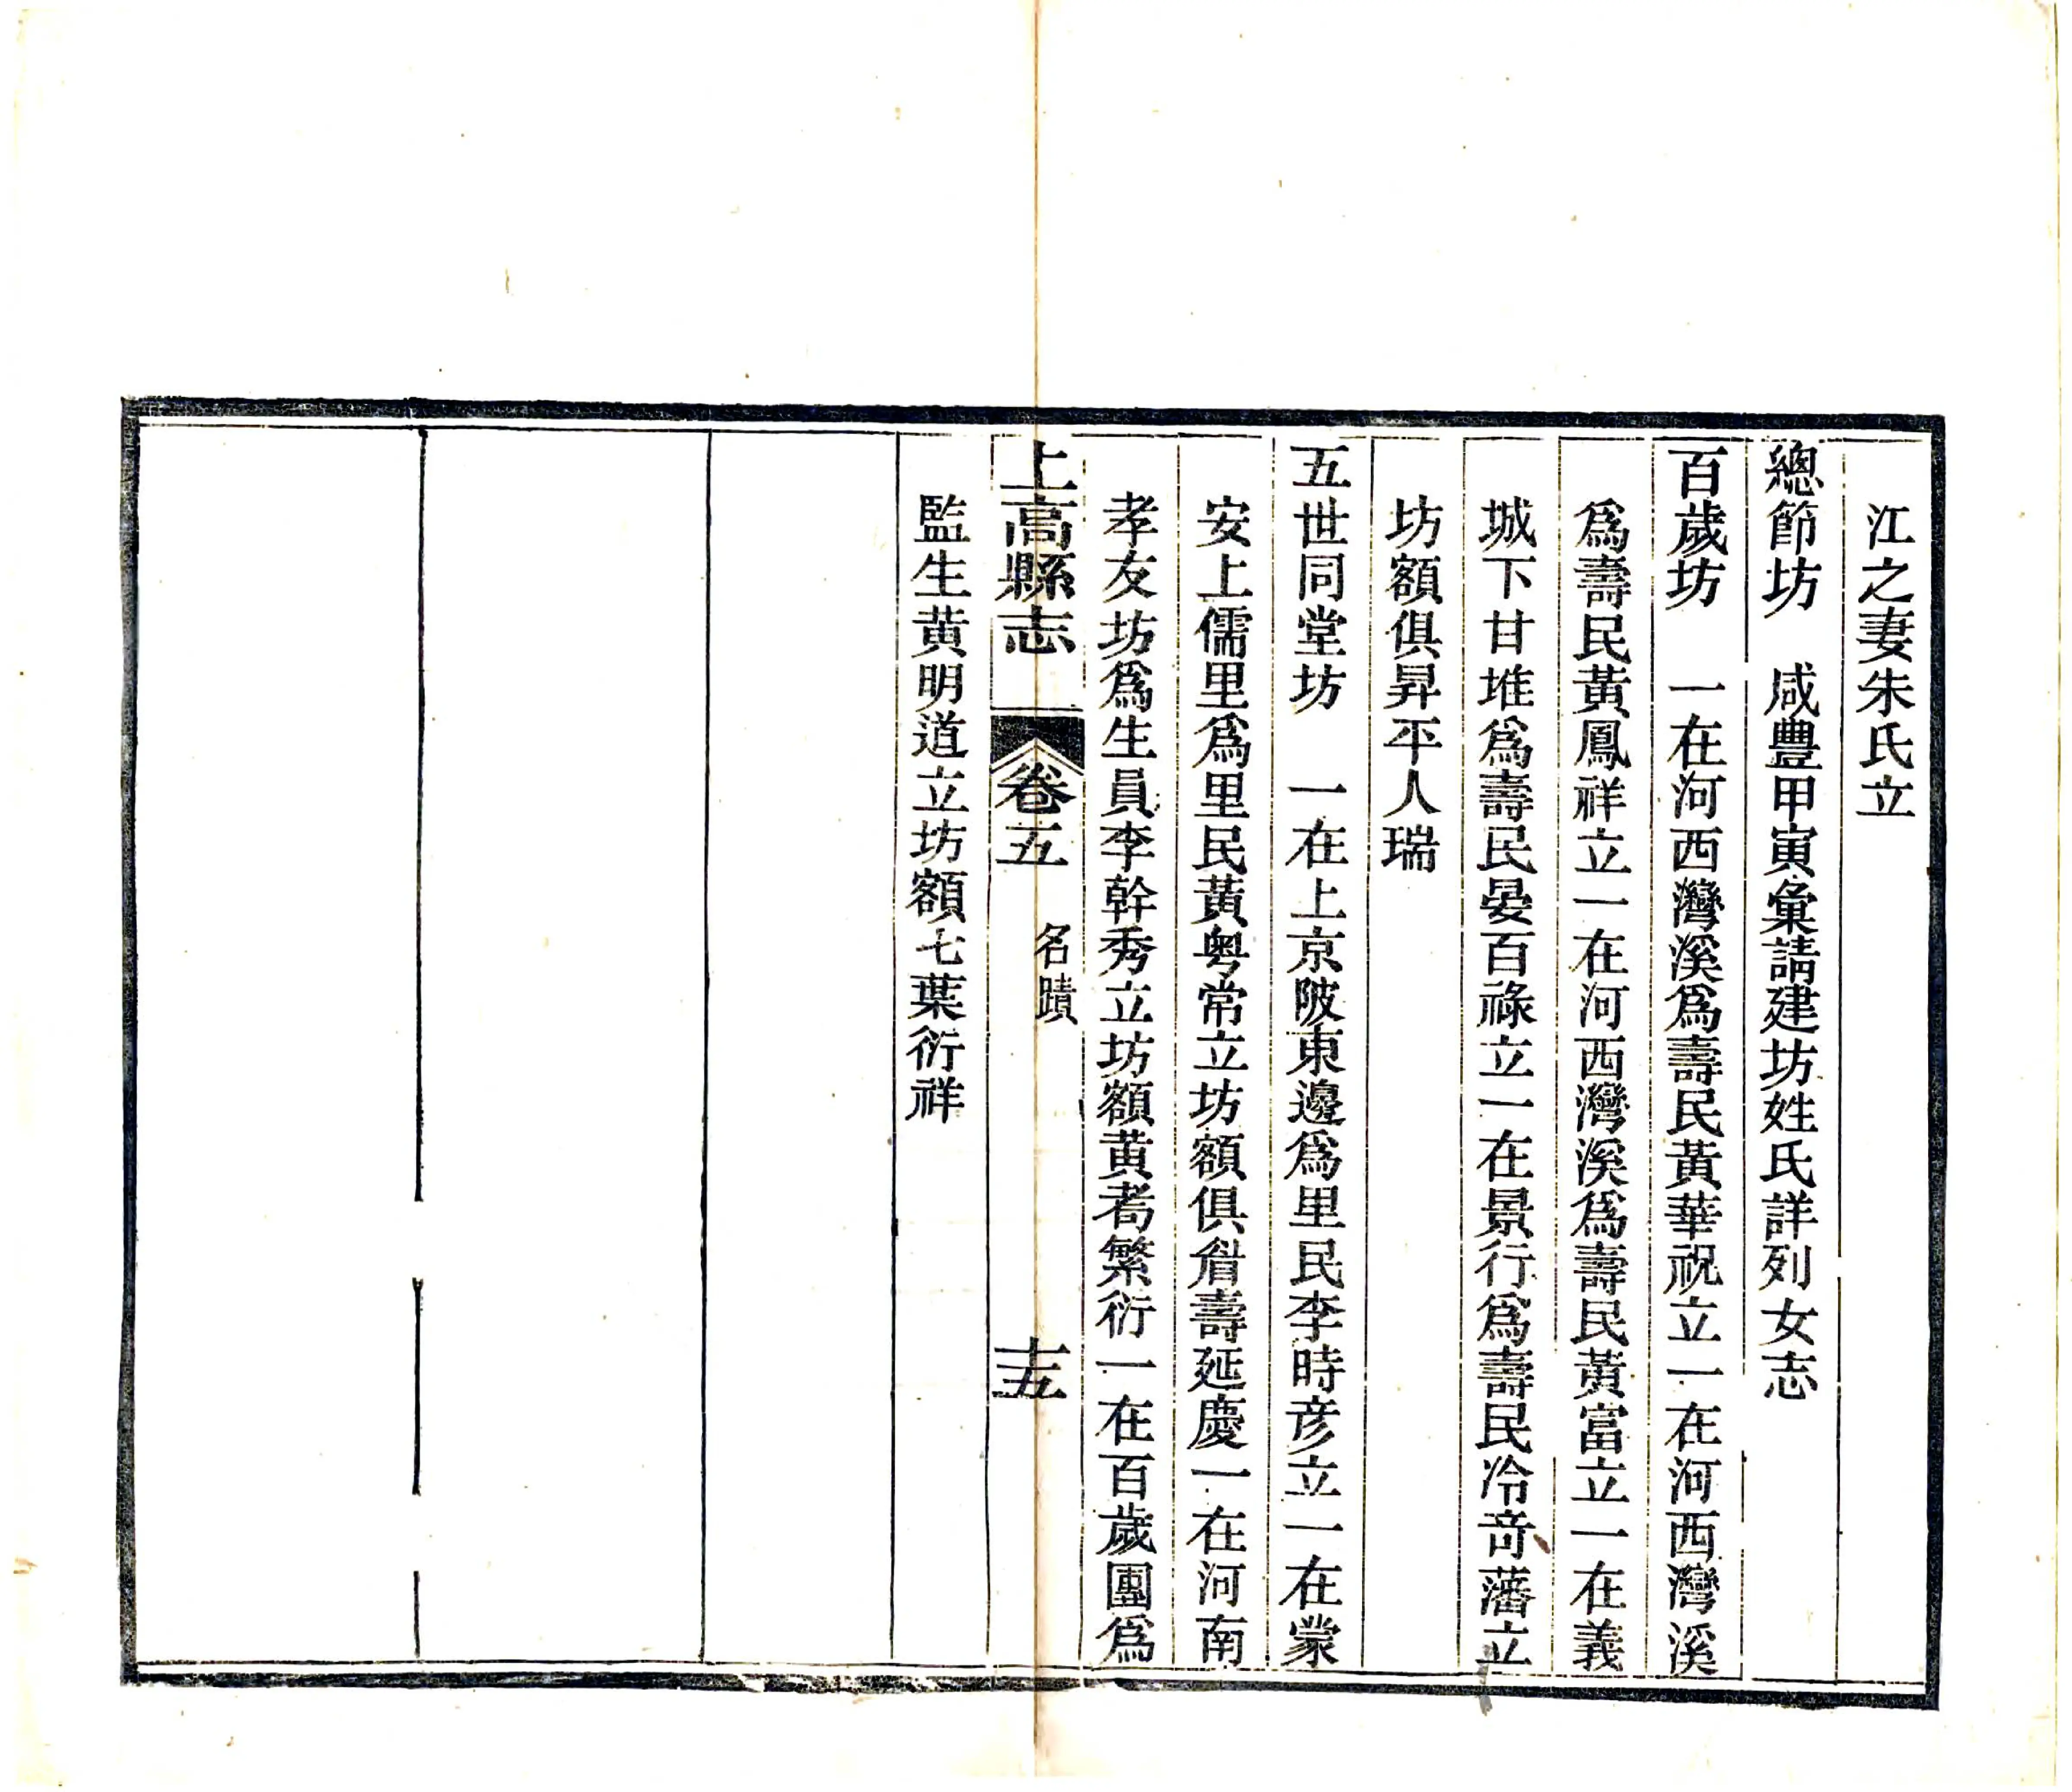 江之妻朱氏立
總節坊　咸豐甲寅彙請建坊姓氏詳列女志
百歲坊　一在河西灣溪爲壽民黃華祝立一在河西灣溪
爲壽民黃鳳祥立一在河西灣溪爲壽民黃富立一在義
城下甘堆爲壽民晏百祿立一在景行爲壽民冷奇藩立
坊額俱昇平人瑞
五世同堂坊　一在上京陂東邊爲里民李時彥立一在蒙
安上儒里爲里民黃粤常立坊額俱眉壽延慶一在河南
孝友坊爲生員李幹秀立坊額黄耇繁衍一在百歲團爲
上高縣志　卷五　名蹟　十五
監生黄明道立坊額七葉衍祥